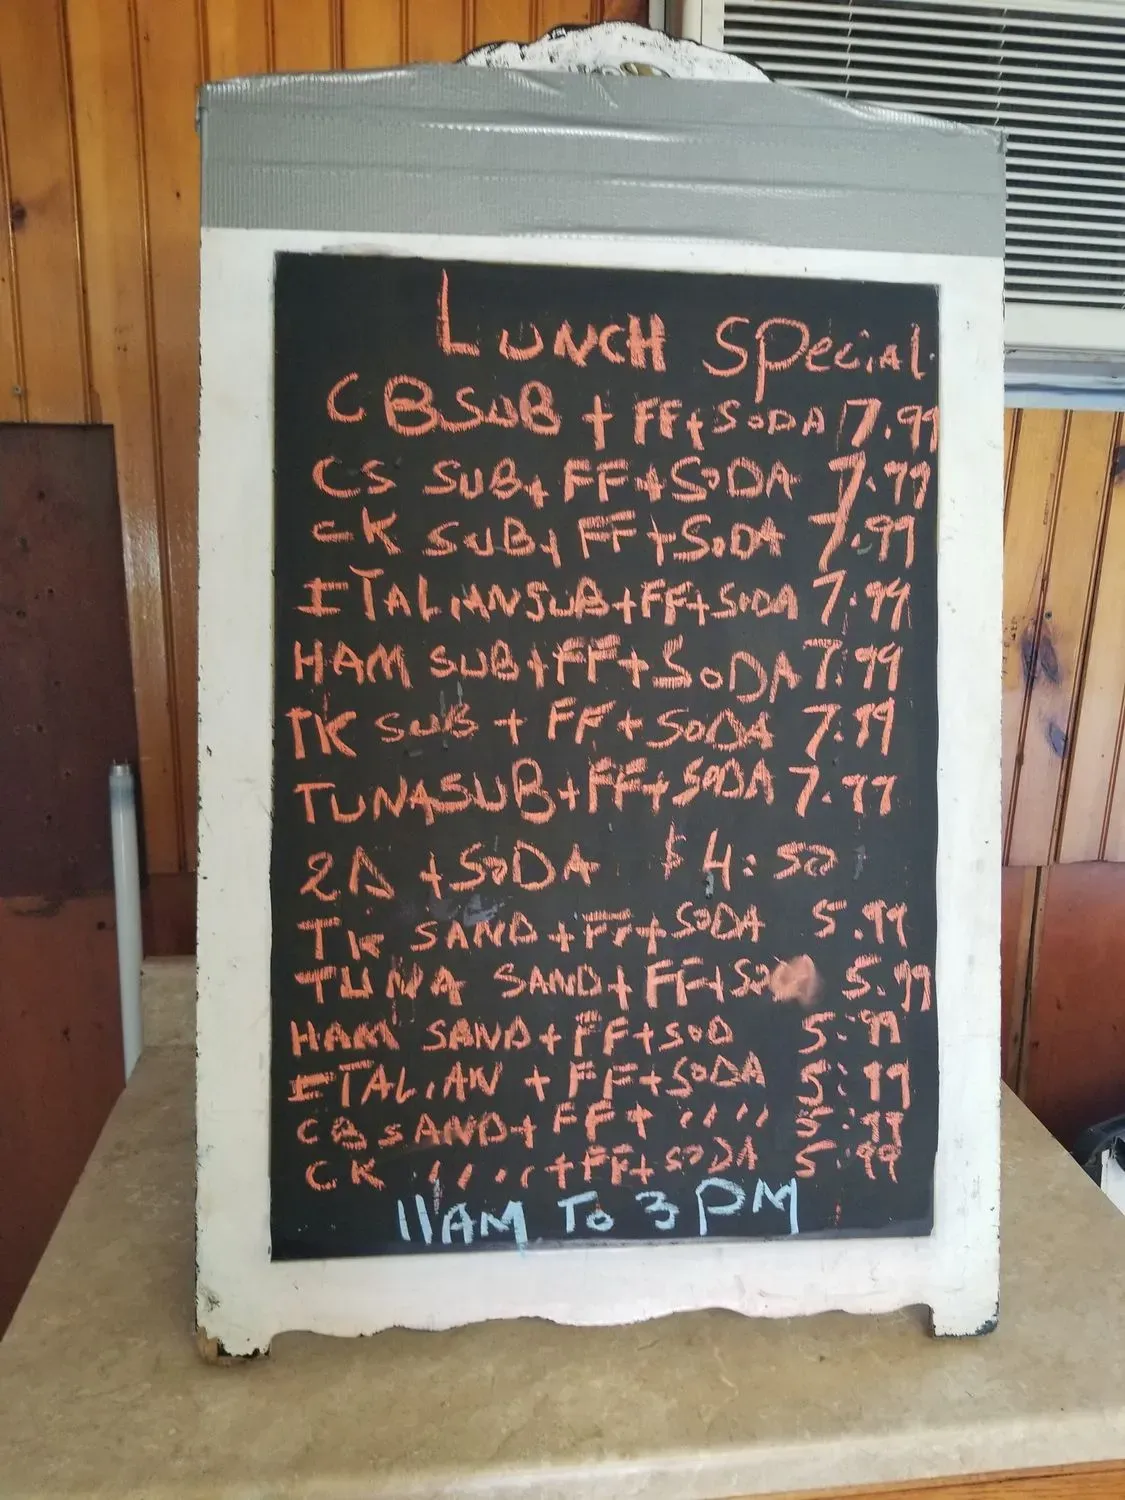 LUNCH SPECIAL
CB SUB + FF + SODA 7.99
CS SUB + FF + SODA 7.99
CK SUB + FF + SODA 7.99
ITALIAN SUB + FF + SODA 7.99
HAM SUB + FF + SODA 7.99
TK SUB + FF + SODA 7.99
TUNA SUB + FF + SODA 7.99
2Δ + SODA $4:50
TK SAND + FF + SODA 5.99
TUNA SAND + FF + SODA 5.99
HAM SAND + FF + SOD 5:99
ITALIAN + FF + SODA 5:99
CB SAND + FF + '' '' 5:99
CK '' '' + FF + SODA 5:99
11AM TO 3PM